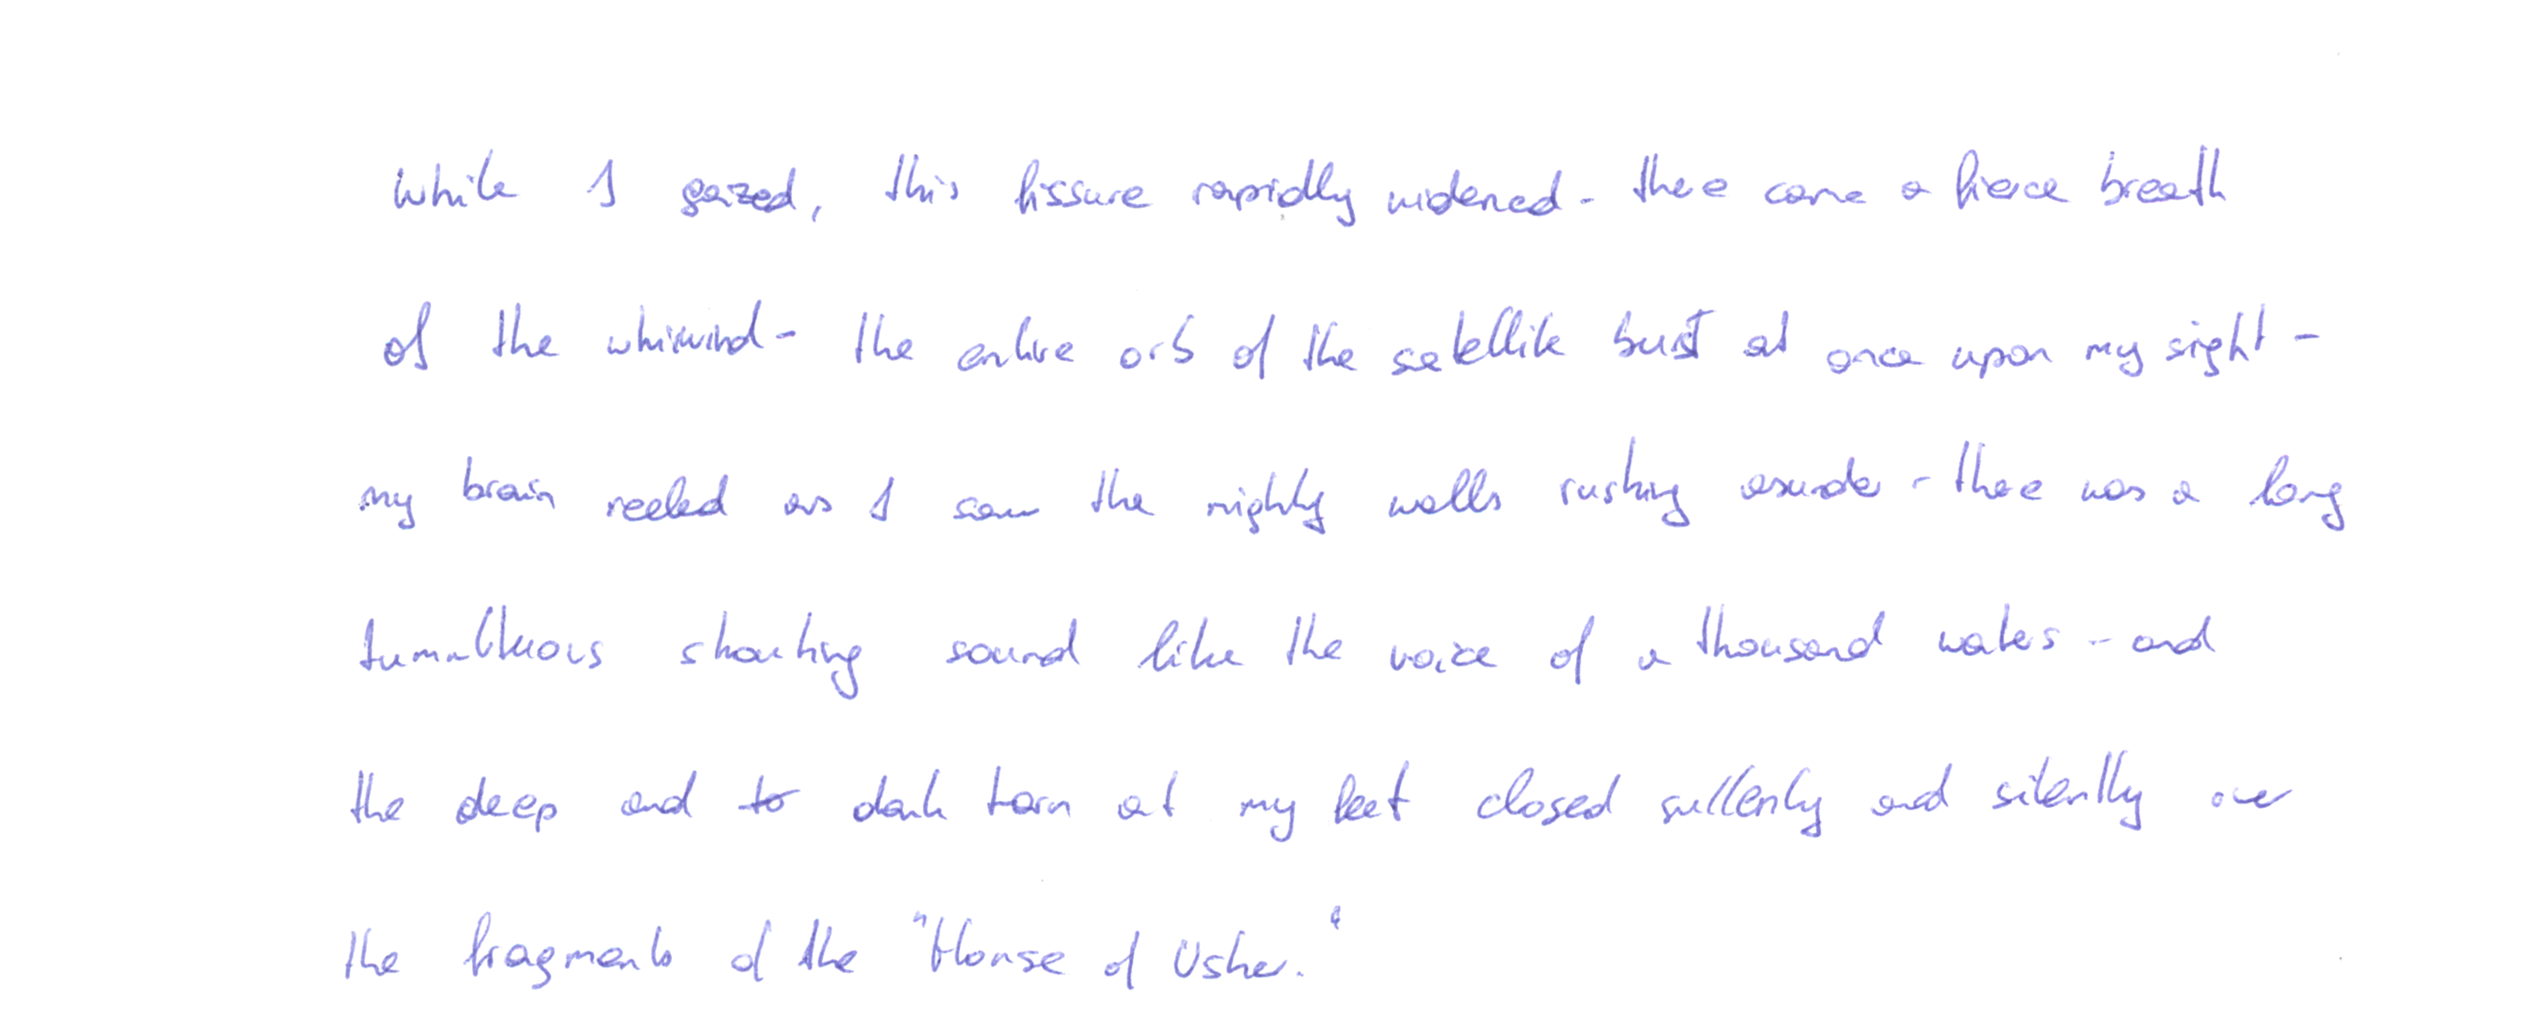 while I gazed, this fissure rapidly widened - there came a fierce breath
of the whirlwind - the entire orb of the satellite burst at once upon my sight -
my brain reeled as I saw the mighty walls rushing asunder - there was a long
tumultuous shouting sound like the voice of a thousand waters - and
the deep and to dank tarn at my feet closed sullenly and silently over
the fragments of the "House of Usher."